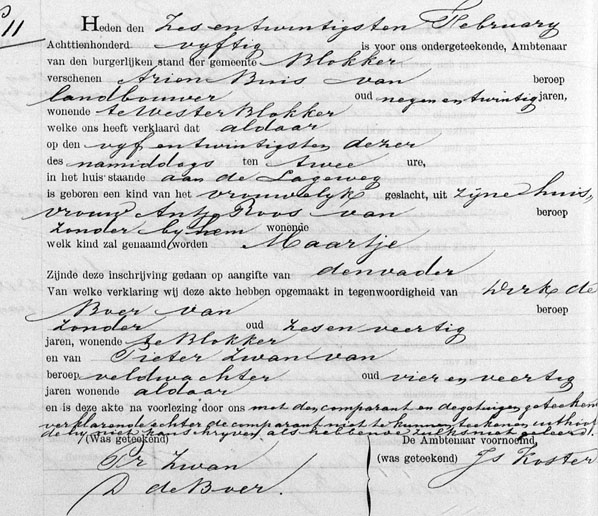 11
Heden den zes en twintigsten February
Achttienhonderd vyftig is voor ons ondergeteekende, Ambtenaar
van den burgerlijken stand der gemeente Blokker
verschenen Arien Buis van beroep
landbouwer oud negen en twintig jaren,
wonende te Wester Blokker
welke ons heeft verklaard dat aldaar
op den vyf en twintigsten dezer
des namiddags ten twee ure,
in het huis staande aan de Lageweg
is geboren een kind van het vrouwelyk geslacht, uit zyne huis,,
vrouw Antje Roos van beroep
zonder by hem wonende
welk kind zal genaamd worden Maartje
Zijnde deze inschrijving gedaan op aangifte van den vader
Van welke verklaring wij deze akte hebben opgemaakt in tegenwoordigheid van Dirk de
Boer van beroep
zonder oud zes en veertig
jaren, wonende te Blokker
en van Pieter Zwan van
beroep veldwachter oud vier en veertig
jaren wonende aldaar
en is deze akte na voorlezing door ons met den comparant en de getuigen geteekend
verklarende echter de comparant niet te kunnen teekenen uit hoofde
de hy niet kan schryven als hebbende zulks niet geleerd.
(Was geteekend) De Ambtenaar voornoemd,
Pr Zwan (was geteekend) Js Koster
D de Boer.